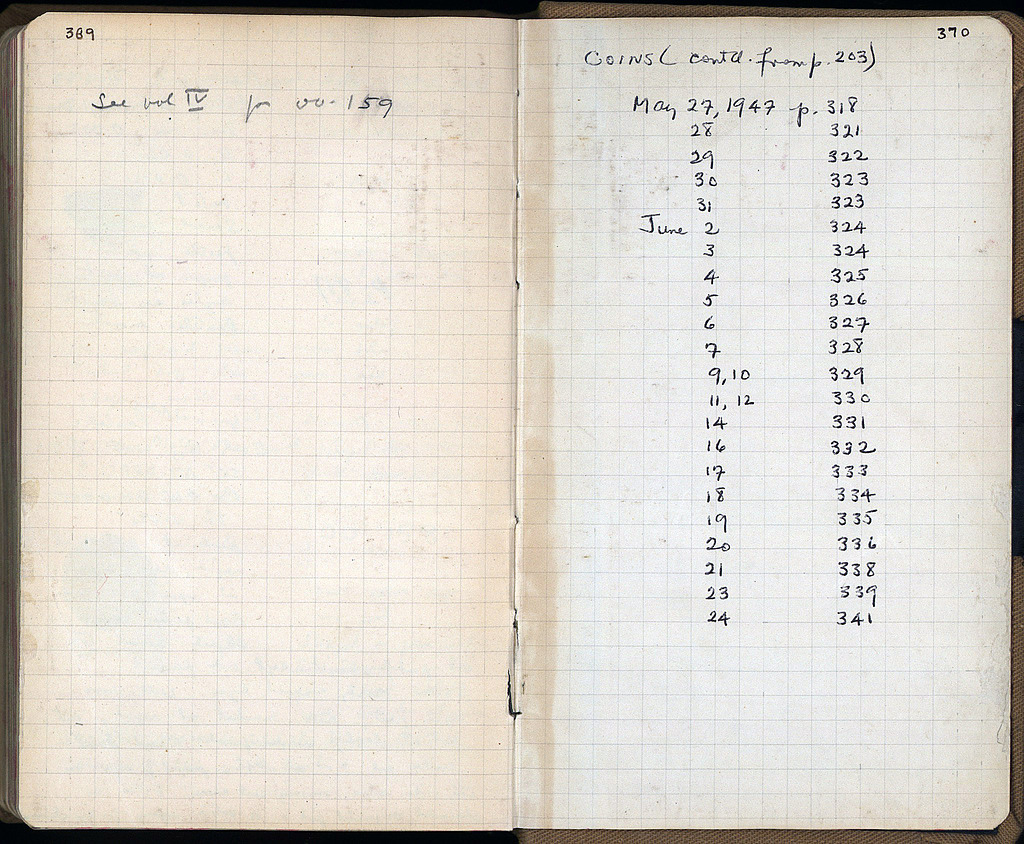 369
See vol IV p 159
370
COINS (contd. from p. 203)
May 27, 1947 p. 318
28 321
29 322
30 323
31 323
June 2 324
3 324
4 325
5 326
6 327
7 328
9, 10 329
11, 12 330
14 331
16 332
17 333
18 334
19 335
20 336
21 338
23 339
24 341